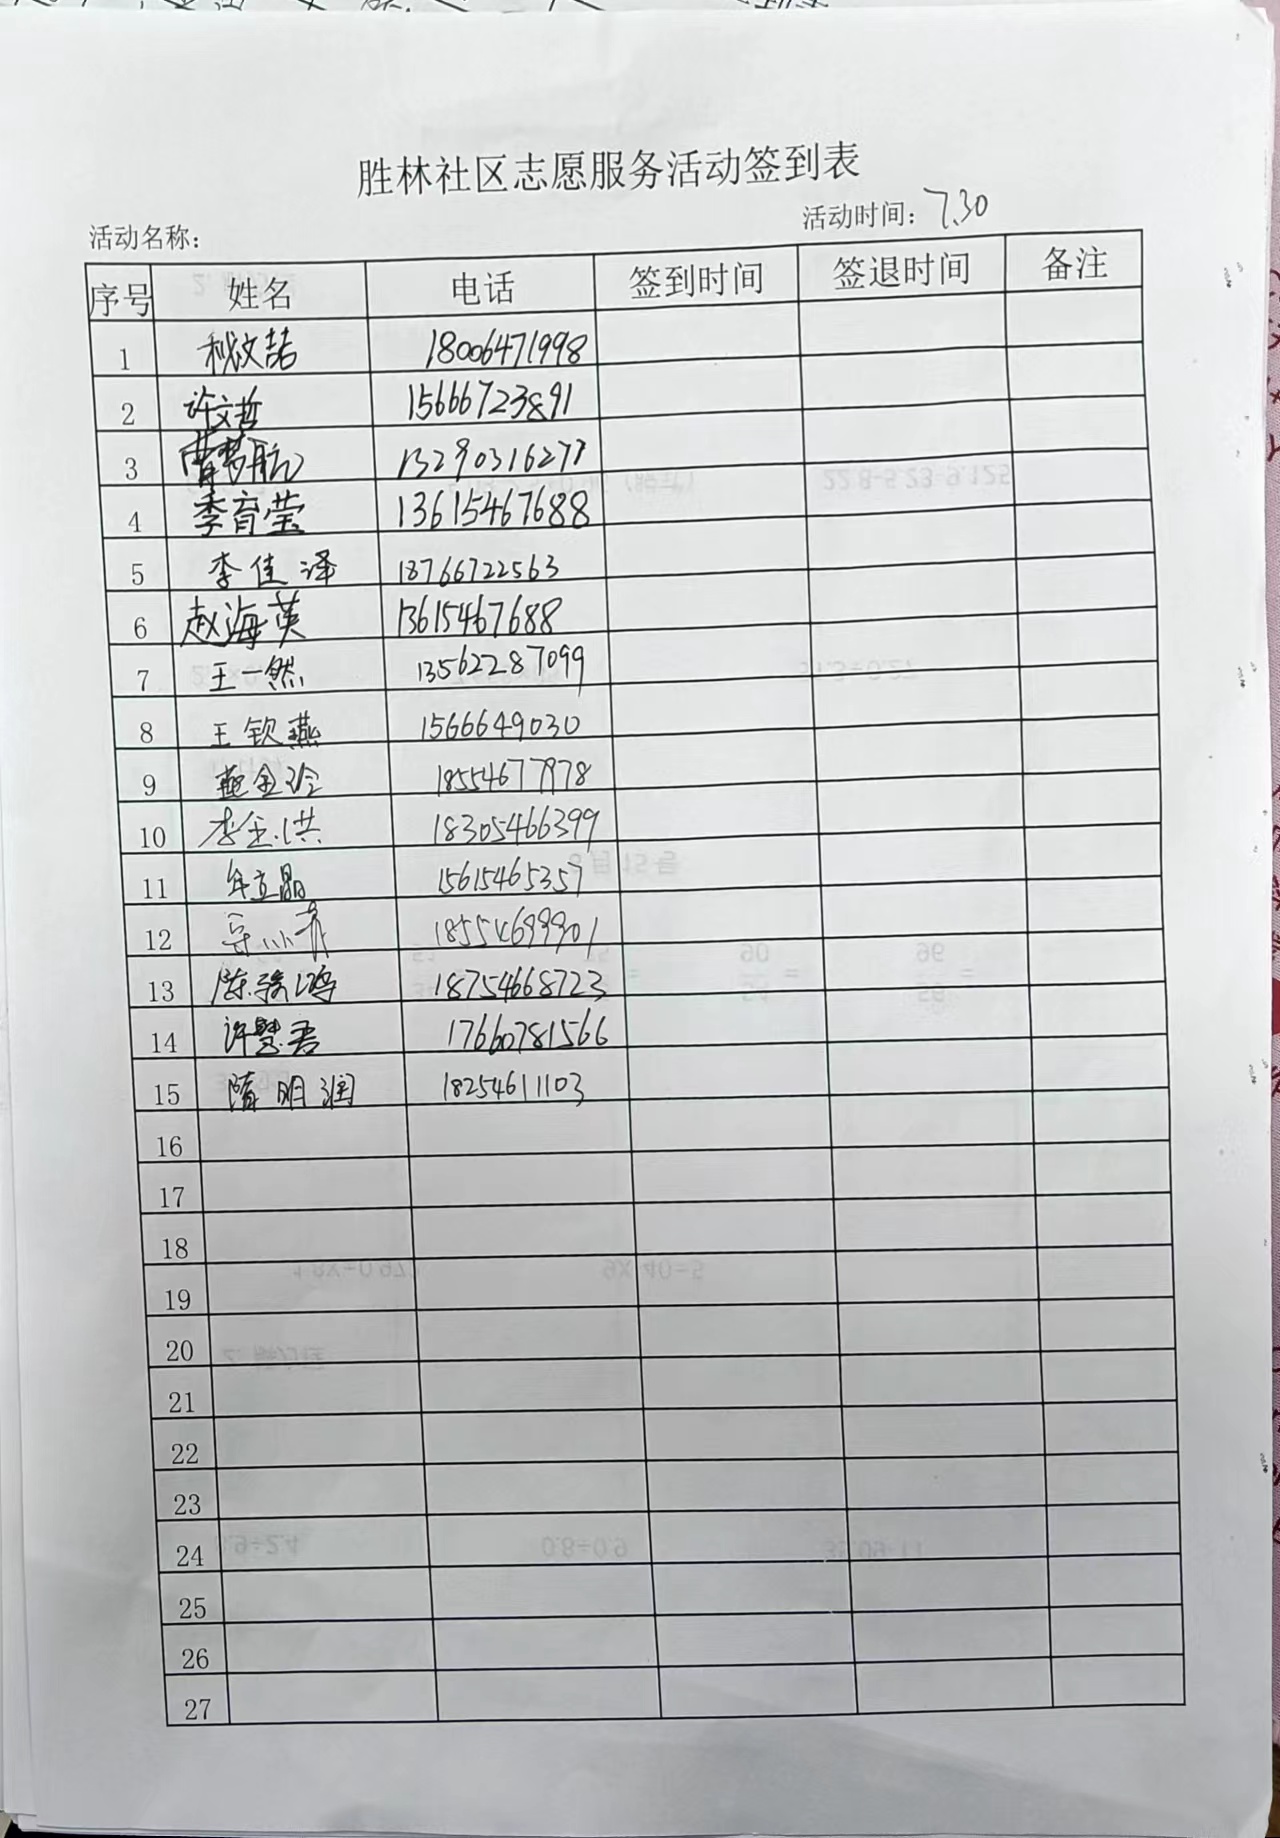 胜林社区志愿服务活动签到表
活动名称: 活动时间: 7.30
序号 姓名 电话 签到时间 签退时间 备注
1 秘文喆 18006471998
2 许文哲 15666723891
3 曹梦航 13290316277
4 季育莹 13615467688
5 李佳泽 18766722563
6 赵海英 13615467688
7 王一然 13562287099
8 王钦燕 1566649030
9 燕金玲 18554677978
10 李金洪 18305466399
11 牟立晶 15615465357
12 18554699901
13 陈骏鸿 18754668723
14 许慧君 17660781566
15 隋明润 18254611103
16
17
18
19
20
21
22
23
24
25
26
27